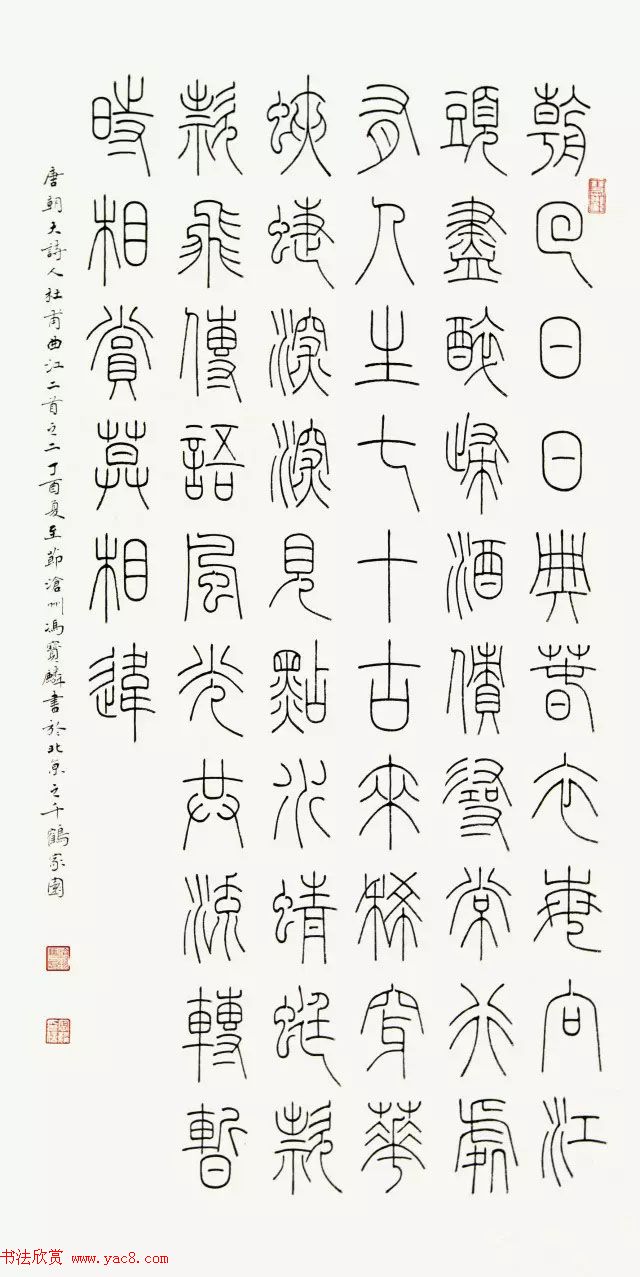 朝回日日典春衣每向江
頭盡醉歸酒債尋常行處
有人生七十古來稀穿華
蛺蝶深深見點水蜻蜓款
款飛傳語風光共流轉暫
時相賞莫相違
唐朝大詩人杜甫曲江二首之二丁酉夏至節滄州馮寶麟書於北京之千鶴家園
书法欣赏 www.yac8.com